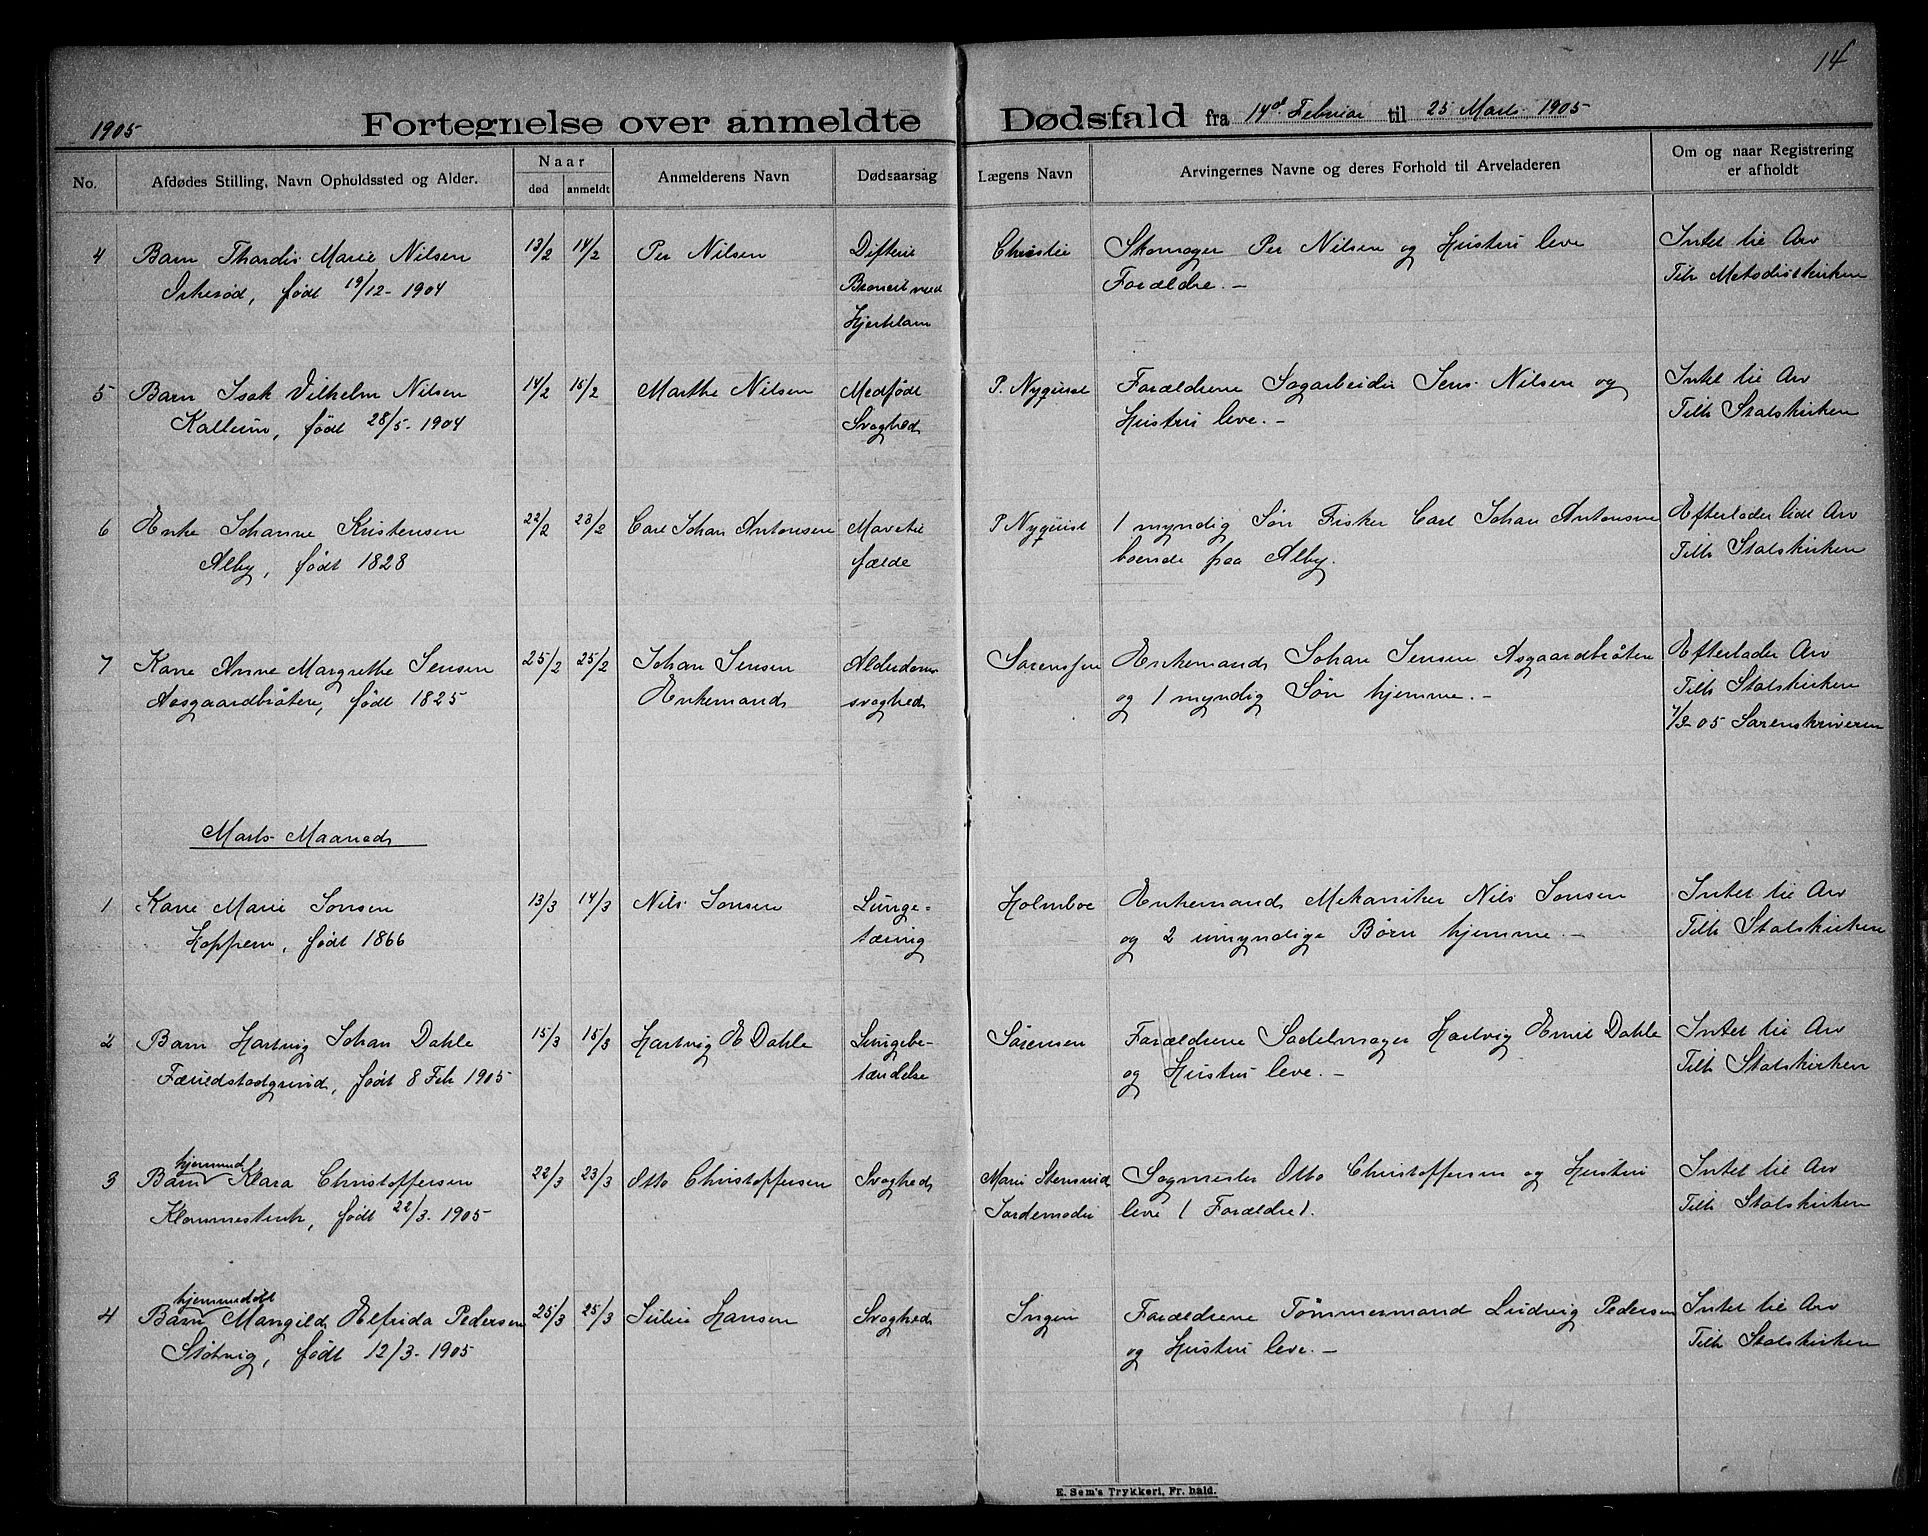 14
1905 Fortegnelse over anmeldte Dødsfald fra 14de Februar til 25 Marts 1905
No. Afdødes Stilling, Navn Opholdssted og Alder. Naar død anmeldt Anmelderens Navn Dødsaarsag Lægens Navn Arvingernes Navne og deres Forhold til Arveladeren Om og naar Registrering er afholdt
4 Barn Thordis Marie Nilsen 13/2 14/2 Per Nilsen Difteri Christie Skomager Per Nilsen og Hustru leve Intet til Arv
født 19/12-1904 Broncit med Forældre. - Tilh Metodistkirken
Hjertelam
5 Barn Isak Vilhelm Nilsen 14/2 15/2 Marthe Nilsen Medfødt P. Nyquist Forældrene Sagarbeider Jens Nilsen og Intet til Arv
Kallum, født 28/5-1904 Svaghed Hustru leve. - Tilh Statskirken
6 Enke Johanne Kristensen 22/2 23/2 Carl Johan Antonsen Mavetil P Nyquist 1 myndig Søn Fisker Carl Johan Antonsen Efterlader lidt Arv
Alby, født 1828 fælde boende paa Alby. Tilh Statskirken
7 Kone Anne Margrethe Jensen 25/2 25/2 Johan Jensen Alderdoms Sørenssen Enkemand Johan Jensen Aasgaardbråten Efterlader Arv
Aasgaardbråten, født 1825 Enkemand svaghed og 1 myndig Søn hjemme. - Tilh Statskirken
7/3-05 Sorenskriveren
Marts Maaned
1 Kone Marie Jonsen 13/3 14/3 Nils Jonsen Lunge- Holmboe Enkemand Mekaniker Nils Jonsen Intet til Arv
Hoppern, født 1866 tæring og 2 umyndige Børn hjemme. - Tilh Statskirken
2 Barn Hartvig Johan Dahle 15/3 15/3 Hartvig E Dahle Lungebe- Sørensen Forældrene Sadelmager Hartvig Emil Dahle Intet til Arv
født 8 Feb 1905 tændelse og Hustru leve. - Tilh Statskirken
hjemmed
3 Barn Klara Christoffersen 22/3 23/3 Otto Christoffersen Svaghed Marie Stensrud Sagmester Otto Christoffersen og Hustru Intet til Arv
Klommestenh, født 22/3-1905 Jordemoder leve (Forældre). Tilh Statskirken
hjemmedøbt
4 Barn Mangild Elfrida Pedersen 25/3 25/3 Julie Hansen Svaghed Ingen Forældrene Tømmermand Ludvig Pedersen Intet til Arv
Støtvig, født 12/3-1905 og Hustru leve. - Tilh Statskirken
E. Sem's Trykkeri, Fr. hald.